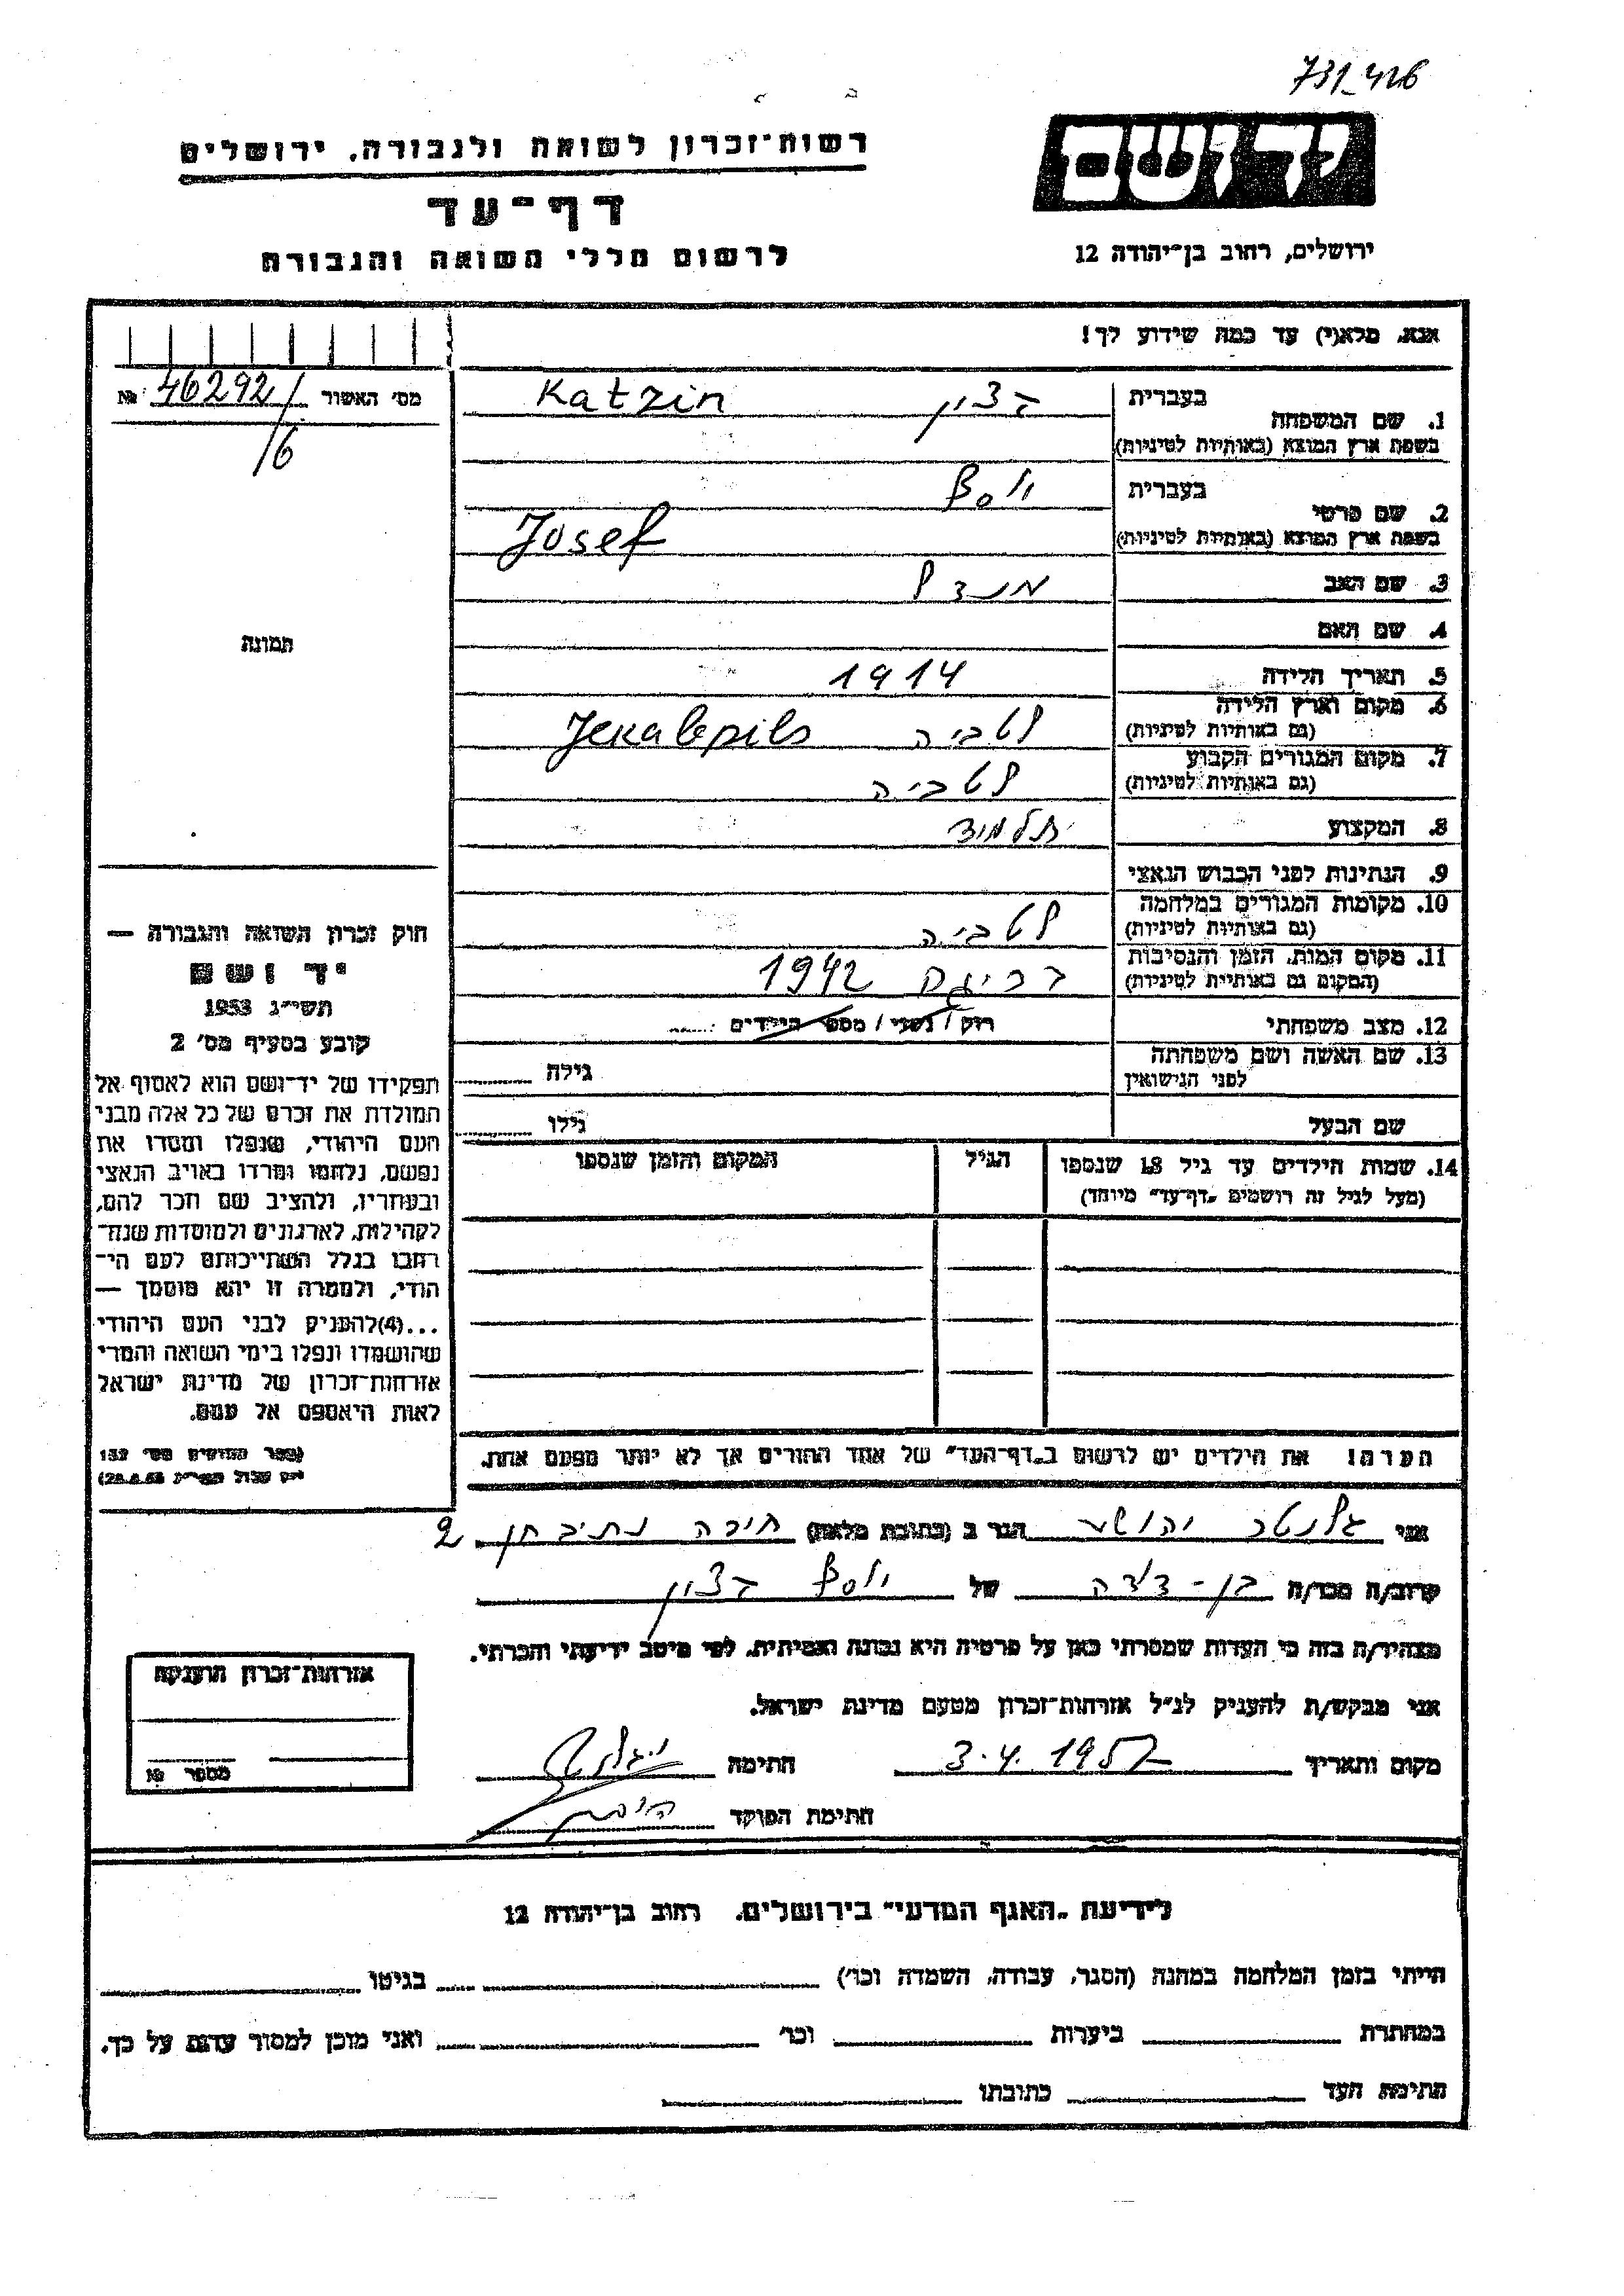 731_426
יד ושם
רשות־זכרון לשואה ולגבורה, ירושלים
דף־עד
לרשום חללי השואה והגבורה
ירושלים, רחוב בן־יהודה 12
אנא, מלא(י) עד כמה שידוע לך!
מס׳ האשור 46292/ №
/6
תמונה
1. שם המשפחה
בעברית קצין Katzin
בשפת ארץ המוצא (באותיות לטיניות)
2. שם פרטי
בעברית יוסף
בשפת ארץ המוצא (באותיות לטיניות) Josef
3. שם האב מנדל
4. שם האם
5. תאריך הלידה 1914
6. מקום וארץ הלידה
(גם באותיות לטיניות) לטביה Jekabpils
7. מקום המגורים הקבוע
(גם באותיות לטיניות) לטביה
8. המקצוע תלמיד
9. הנתינות לפני הכבוש הנאצי
10. מקומות המגורים במלחמה
(גם באותיות לטיניות) לטביה
11. מקום המות, הזמן והנסיבות
(המקום גם באותיות לטיניות) בריגה 1942
12. מצב משפחתי רוק / נשוי / מספר הילדים
13. שם האשה ושם משפחתה
לפני הנישואין גילה
שם הבעל גילו
14. שמות הילדים עד גיל 18 שנספו
(מעל לגיל זה רושמים „דף־עד״ מיוחד)
הגיל
המקום והזמן שנספו
חוק זכרון השואה והגבורה —
יד ושם
תשי״ג 1953
קובע בסעיף מס׳ 2
תפקידו של יד־ושם הוא לאסוף אל
המולדת את זכרם של כל אלה מבני
העם היהודי, שנפלו ומסרו את
נפשם, נלחמו ומרדו באויב הנאצי
ובעוזריו, ולהציב שם וזכר להם,
לקהילות, לארגונים ולמוסדות שנח־
רבו בגלל השתייכותם לעם הי־
הודי, ולמטרה זו יהא מוסמך —
...(4) להעניק לבני העם היהודי
שהושמדו ונפלו בימי השואה והמרי
אזרחות־זכרון של מדינת ישראל
לאות היאספם אל עמם.
(ספר החוקים מס׳ 132
הערה! את הילדים יש לרשום ב„דף־העד״ של אחד ההורים אך לא יותר מפעם אחת.
אני גלנטר יהושע הגר ב (כתובת מלאה) חיפה נתיב חן 2
קרוב/ה מכר/ה בן-דודה של יוסף קצין
מצהיר/ה בזה כי העדות שמסרתי כאן על פרטיה היא נכונה ואמיתית, לפי מיטב ידיעתי והכרתי.
אני מבקש/ת להעניק לנ״ל אזרחות־זכרון מטעם מדינת ישראל.
מקום ותאריך 3.4.1957 חתימה
חתימת הפוקד
אזרחות־זכרון הוענקה
מספר №
לידיעת „האגף המדעי״ בירושלים, רחוב בן־יהודה 12
הייתי בזמן המלחמה במחנה (הסגר, עבודה, השמדה וכו׳) בגיטו
במחתרת ביערות וכו׳ ואני מוכן למסור עדות על כך.
חתימת העד כתובתו